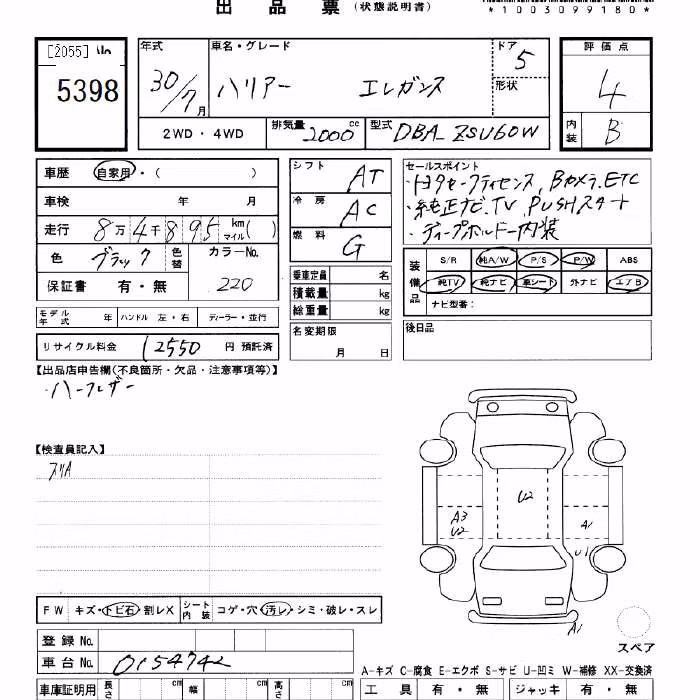 出品票(状態説明書)
*1003099180*
[2055] No
5398
年式 車名・グレード ドア 5 評価点
30/7月 ハリアー エレガンス 形状 4
2WD・4WD 排気量 2000cc 型式 DBA-ZSU60W 内装 B
車歴 自家用・( )
車検 年 月
走行 8万4千895 km マイル( )
色 ブラック 色替 カラーNo. 220
保証書 有・無
モデル年式 年 ハンドル 左・右 ディーラー・並行
リサイクル料金 12550 円 預託済
シフト AT
冷房 AC
燃料 G
乗車定員 名
積載量 kg
総重量 kg
名変期限
月 日
セールスポイント
・トヨタセーフティセンス、Bカメラ、ETC
・純正ナビ、TV、PUSHスタート
・ディープボルドー内装
装備品 S/R 純A/W P/S P/W ABS
純TV 純ナビ 革シート 外ナビ エアB
ナビ型番:
後日品
【出品店申告欄(不良箇所・欠品・注意事項等)】
・ハーフレザー
【検査員記入】
スリA
U2
A3
U2
A1
U1
A1
スペア
FW キズ・トビ石・割レX シート内装 コゲ・穴・汚レ・シミ・破レ・スレ
登録No.
車台No. 0154742
A-キズ C-腐食 E-エクボ S-サビ U-凹ミ W-補修 XX-交換済
車庫証明用 長さ cm 幅 cm 高さ cm 工具 有・無 ジャッキ 有・無